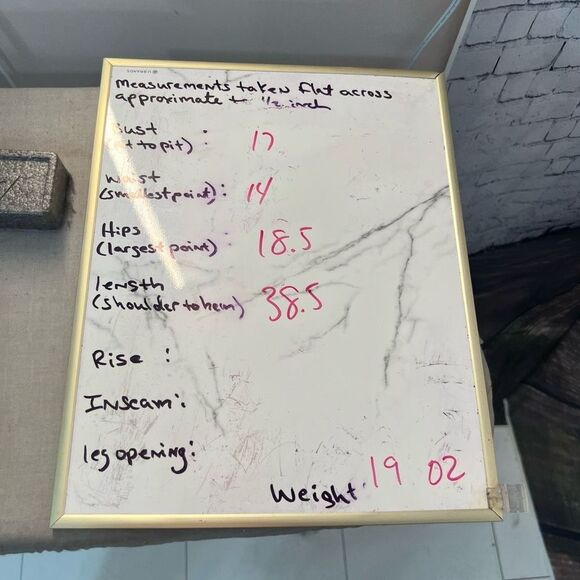 U BRANDS
Measurements taken flat across
approximate to 1/2 inch
Bust :
(pit to pit) : 17
Waist
(smallest point) : 14
Hips
(largest point) 18.5
length
(shoulder to hem) 38.5
Rise :
Inseam :
leg opening :
Weight: 19 02